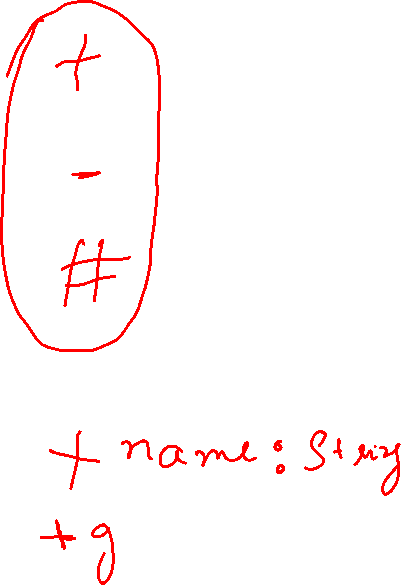 +
-
#
+ name: String
+g